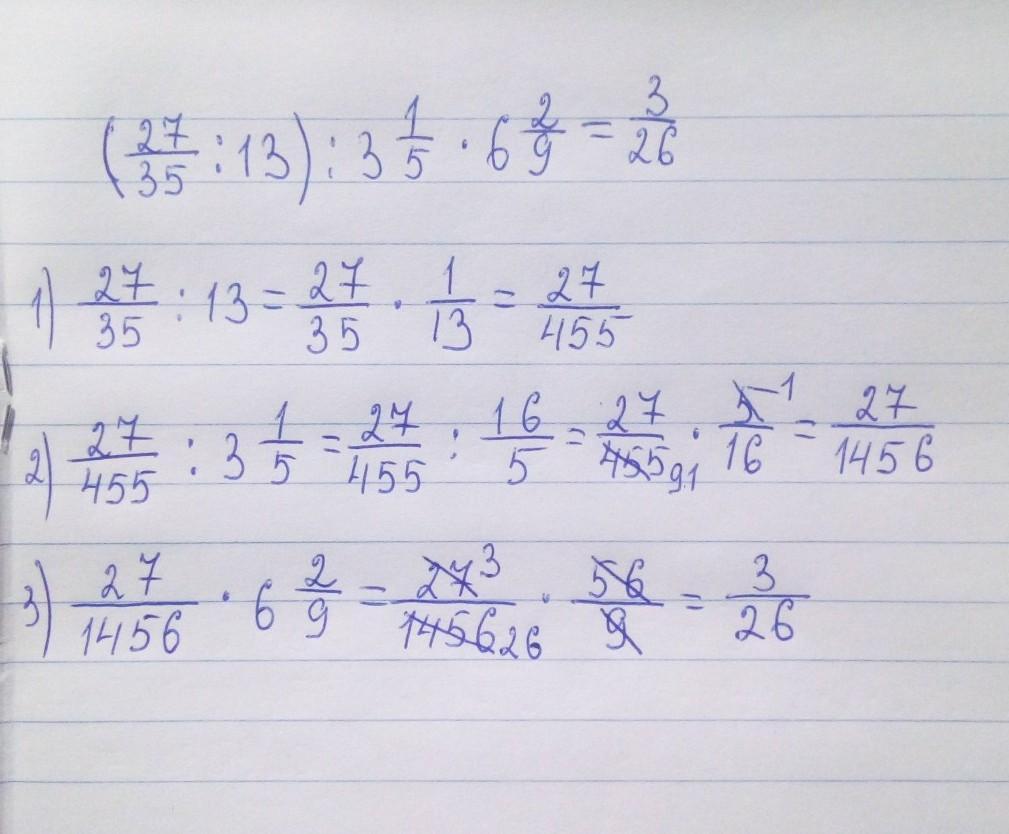 (27/35 : 13) : 3 1/5 · 6 2/9 = 3/26
1) 27/35 : 13 = 27/35 · 1/13 = 27/455
2) 27/455 : 3 1/5 = 27/455 : 16/5 = 27/455 91 · 5 1/16 = 27/1456
3) 27/1456 · 6 2/9 = 27 3/1456 26 · 56/9 = 3/26